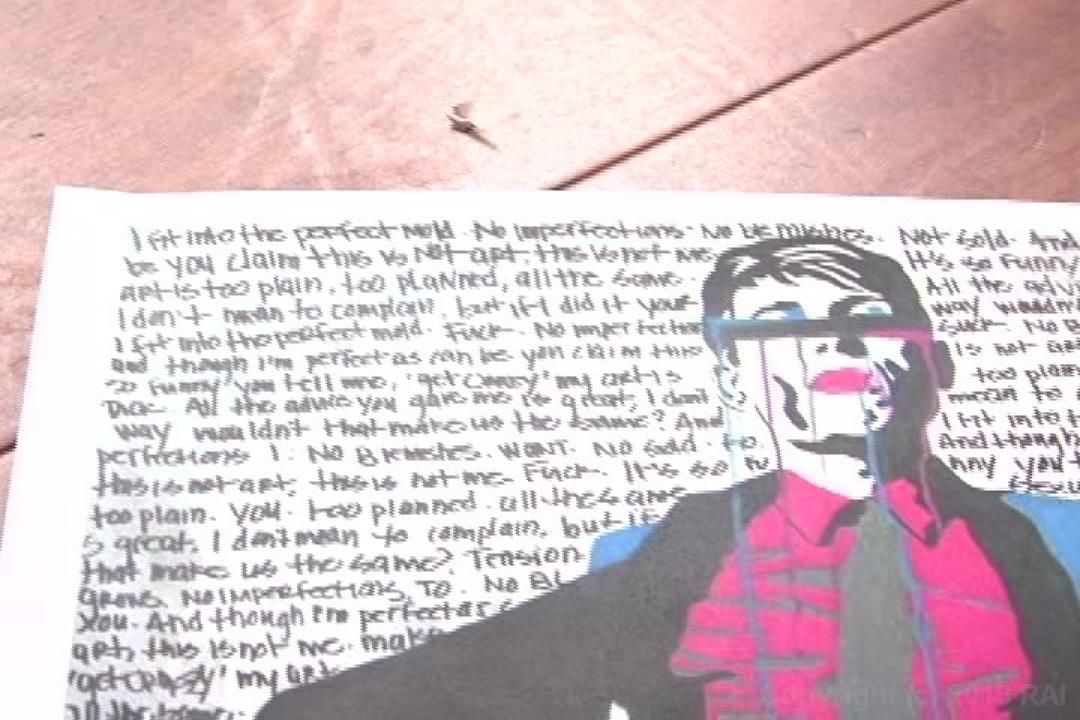 I fit into the perfect mold. No imperfections. No blemishes. Not sold. And
be you claim this is Not art. this is not me It's so funny
art is too plain, too planned, all the same All the adv
I don't mean to complain, but if I did it your way wouldn't
I fit into the perfect mold. Fuck. No imperfection Fuck. No B
and though I'm perfect as can be you claim this is not art
so funny you tell me, 'get crazy' my art is too plain
True. All the advice you gave me is great, I don't mean to
way wouldn't that make us the same? And I fit into t
perfections 1. No Blemishes. WANT. No Sold. And though
this is not art, this is not me. Fuck. It's so nny you t
too plain. You. too planned. all the same
is great, I don't mean to complain, but if
that make us the same? Tension
No Imperfections, TO. No BL
You. And though I'm perfect as
art, this is not me. make
'get crazy' my art
all the same.
Copyright (c) RAI